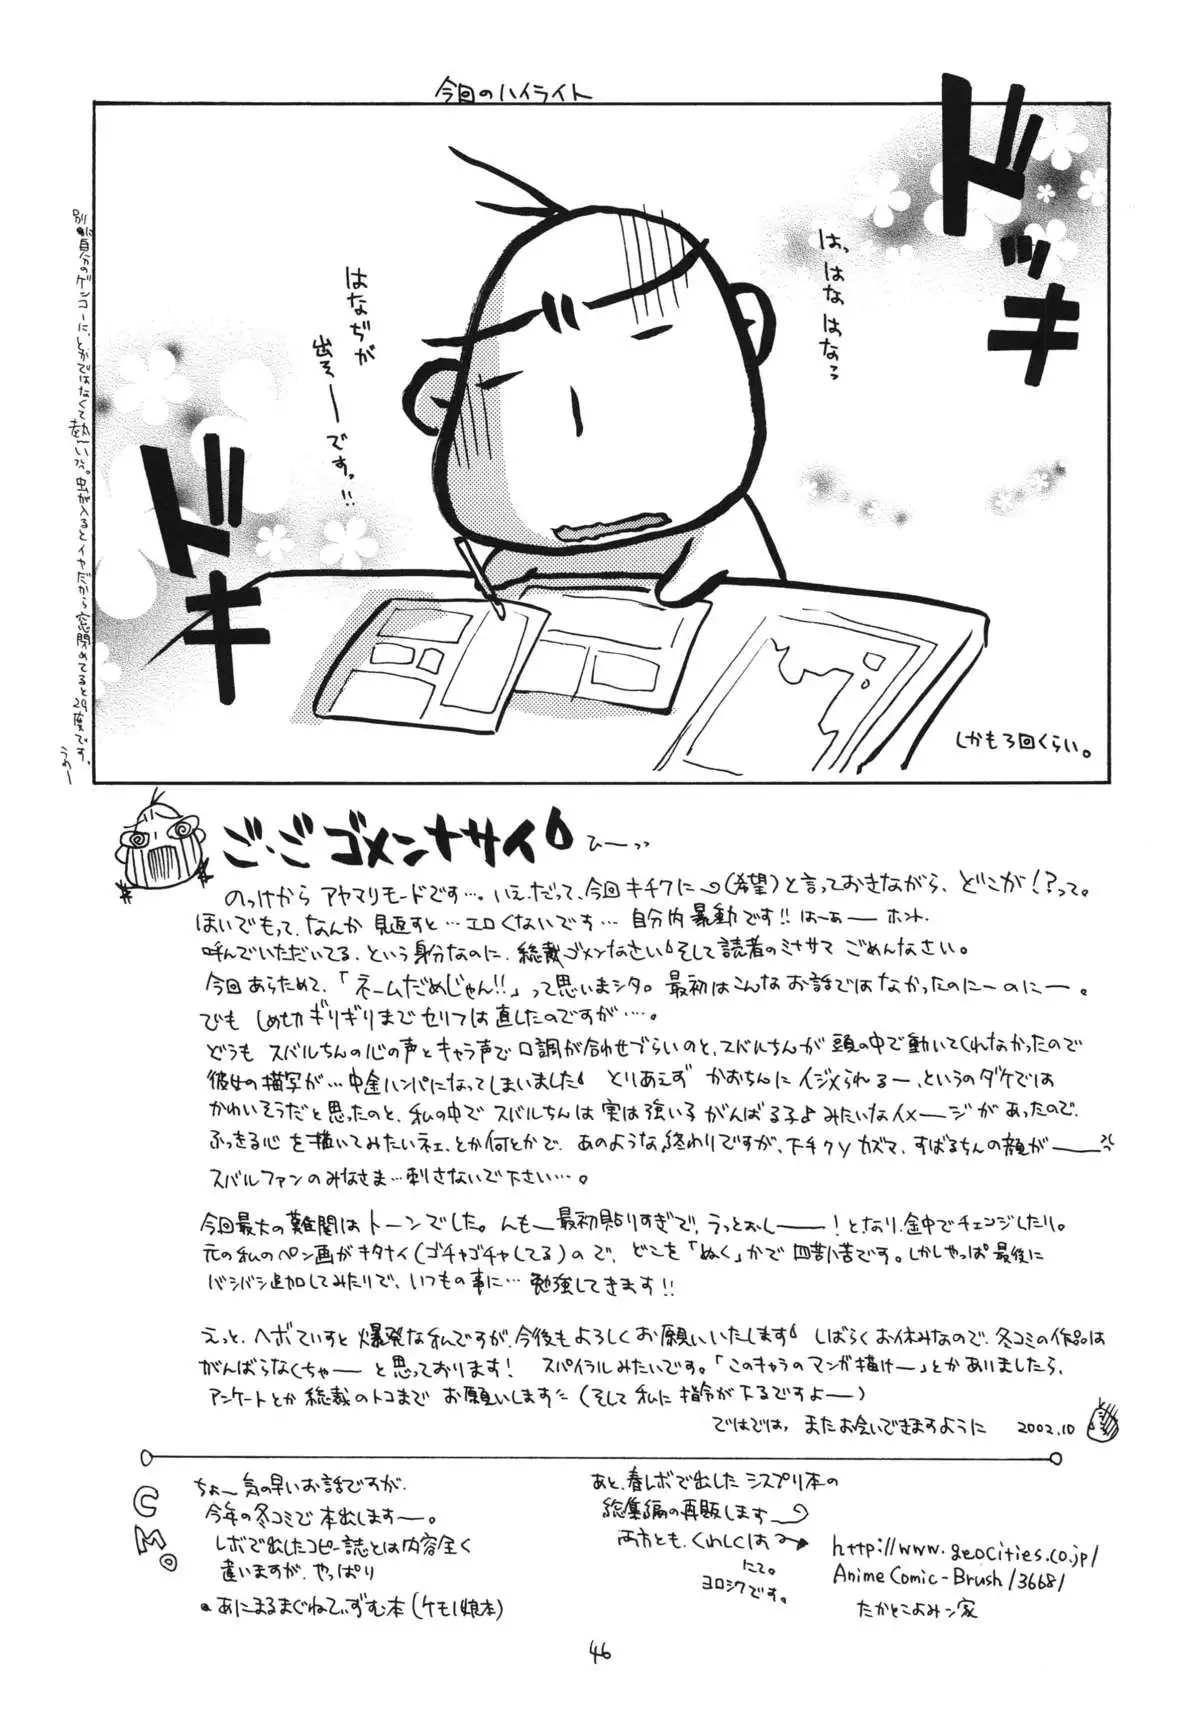 今回のハイライト
ドッキ
ドキ
は、はなはなっ
はなぢが
出そーですっ!!
しかも3回くらい。
別に自分のゲンコーに、とかではなくて熱ーいから。虫が入るとイヤだから窓閉めてると29度です。うふー
ご・ごゴメンナサイ
ひーっっ
のっけからアヤマリモードです…。いえ、だって、今回キチクに〜(希望)と言っておきながら、どこが!?って。
ほいでもって、なんか見返すと…エロくないです…自分内暴動です!!はーぁーホント、
呼んでいただいてる、という身分なのに、総裁ゴメンなさい そして読者のミナサマごめんなさい。
今回あらためて、「ネームだめじゃん!!」って思いまシタ。最初はこんなお話ではなかったのにーのにー。
でもしめ切ギリギリまでセリフは直したのですが…。
どうもスバルちんの心の声とキャラ声で口調が合わせづらいのと、スバルちんが頭の中で動いてくれなかったので
彼女の描写が…中途ハンパになってしまいました とりあえずかおちんにイジめられるー、というのダケでは
かわいそうだと思ったのと、私の中でスバルちんは実は強い子がんばる子よみたいなイメージがあったので、
ふっきる心を描いてみたいネェ、とか何とかで、あのような終わりですが、下チクソカズマ、すばるちんの顔がーー
スバルファンのみなさま…刺さないで下さい…。
今回最大の難関はトーンでした。んもー最初貼りすぎで、うっとおしーー!となり、途中でチェンジしたり。
元の私のペン画がキタナイ(ゴチャゴチャしてる)ので、どこを「ぬく」かで四苦八苦です。しかしやっぱ最後に
バシバシ追加してみたりで、いつもの事に…勉強してきます!!
えっと、ヘボていすと爆発な私ですが、今後もよろしくお願いいたします しばらくお休みなので、冬コミの作品は
がんばらなくちゃーと思っております! スパイラルみたいです。「このキャラのマンガ描けー」とかありましたら、
アンケートとか総裁のトコまでお願いします(そして私に指令が下るですよー)
ではでは、またお会いできますように 2002.10
CM。
ちょー気の早いお話ですが、
今年の冬コミで本出しますー。
レボで出したコピー誌とは内容全く
違いますが、やっぱり
・あにまるまぐねてぃずむ本(ケモノ娘本)
あと、春レボで出したシスプリ本の
総集編の再販します
両方とも、くわしくは
にて。
ヨロシクです。
http://www.geocities.co.jp/
AnimeComic-Brush/3668/
たかとこよみン家
46